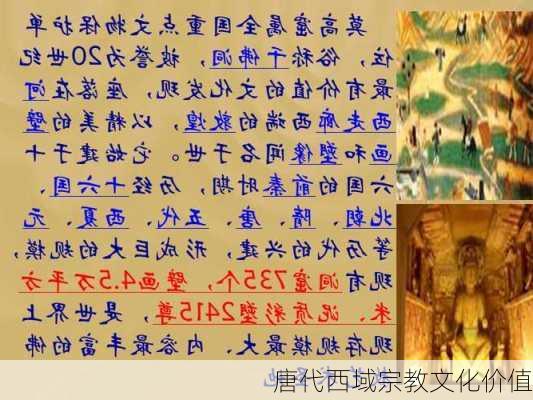 莫高窟属全国重点文物保护单
位，俗称千佛洞，被誉为20世纪
最有价值的文化发现，座落在河
西走廊西端的敦煌，以精美的壁
画和塑像闻名于世。它始建于十
六国的前秦时期，历经十六国、
北朝、隋、唐、五代、西夏、元
等历代的兴建，形成巨大的规模，
现有洞窟735个，壁画4.5万平方
米、泥质彩塑2415尊，是世界上
现存规模最大、内容最丰富的佛
圣地
唐代西域宗教文化价值